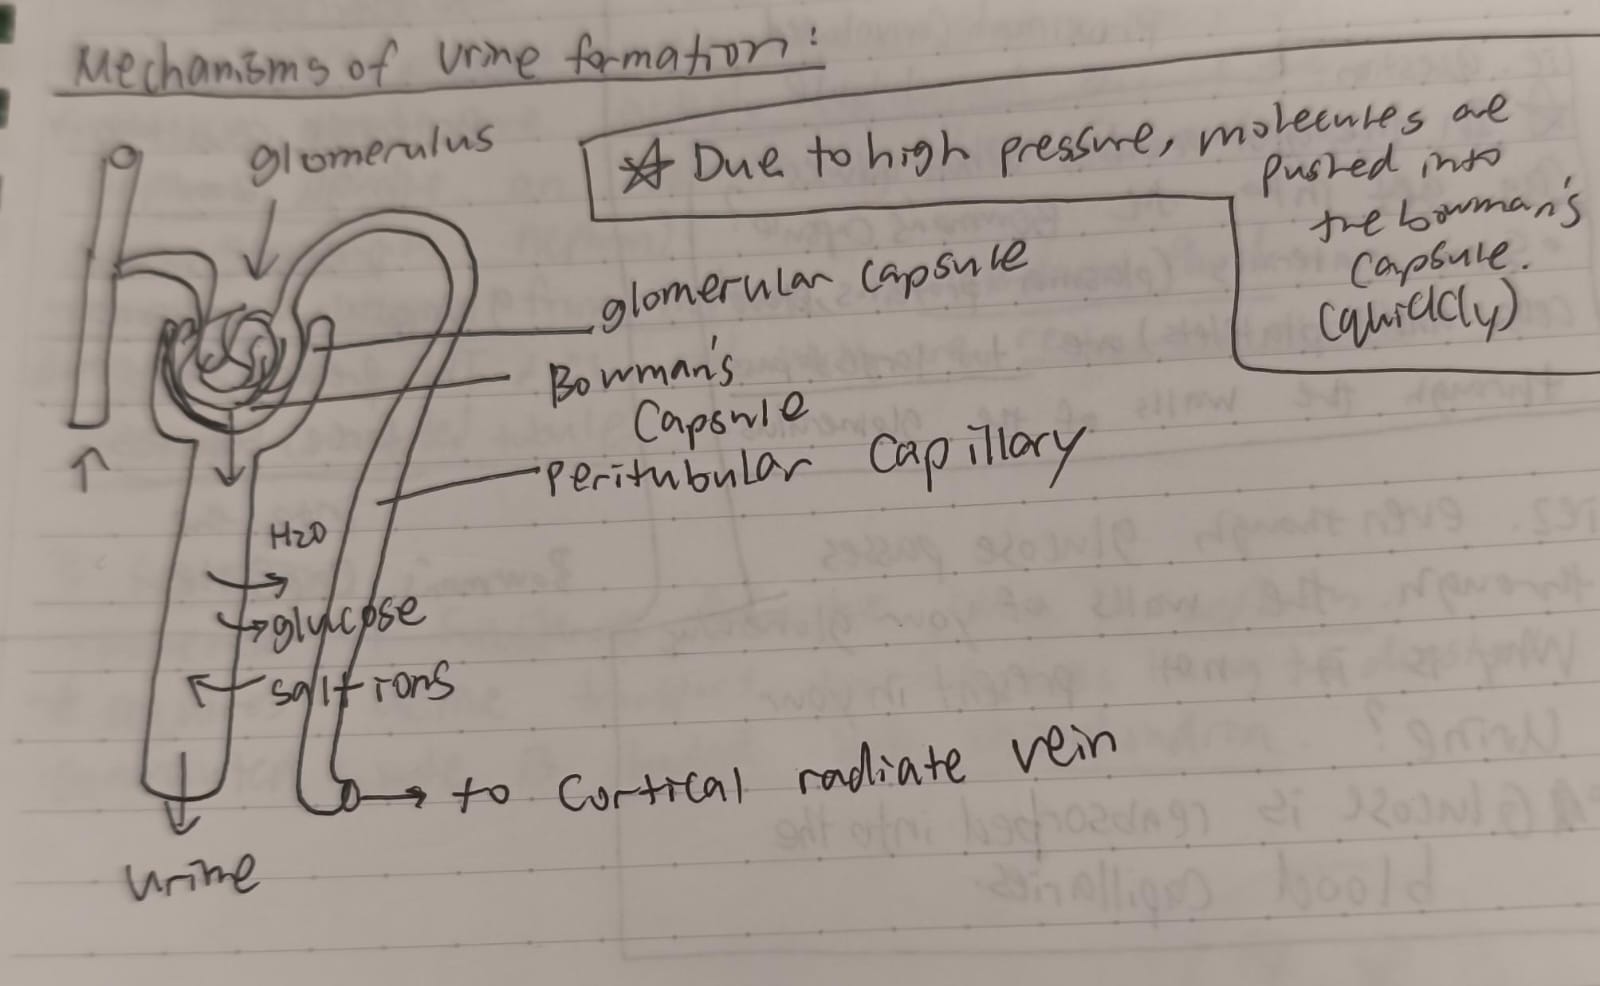 Mechanisms of urine formation:
glomerulus
☆ Due to high pressure, molecules are
pushed into
the bowman's
capsule.
(quickly)
glomerular capsule
Bowman's
Capsule
peritubular capillary
H2O
glucose
salt ions
to cortical radiate vein
urine